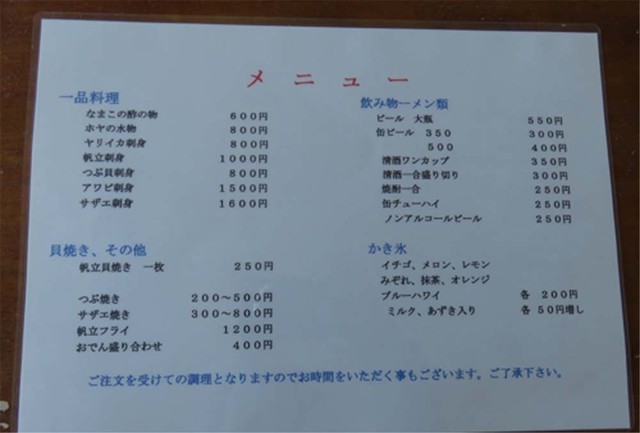 メニュー
一品料理
なまこの酢の物 600円
ホヤの水物 800円
ヤリイカ刺身 800円
帆立刺身 1000円
つぶ貝刺身 800円
アワビ刺身 1500円
サザエ刺身 1600円
貝焼き、その他
帆立貝焼き 一枚 250円
つぶ焼き 200～500円
サザエ焼き 300～800円
帆立フライ 1200円
おでん盛り合わせ 400円
飲み物ーメン類
ビール 大瓶 550円
缶ビール 350 300円
500 400円
清酒ワンカップ 350円
清酒一合盛り切り 300円
焼酎一合 250円
缶チューハイ 250円
ノンアルコールビール 250円
かき氷
イチゴ、メロン、レモン
みぞれ、抹茶、オレンジ
ブルーハワイ 各 200円
ミルク、あずき入り 各 50円増し
ご注文を受けての調理となりますのでお時間をいただく事もございます。ご了承下さい。